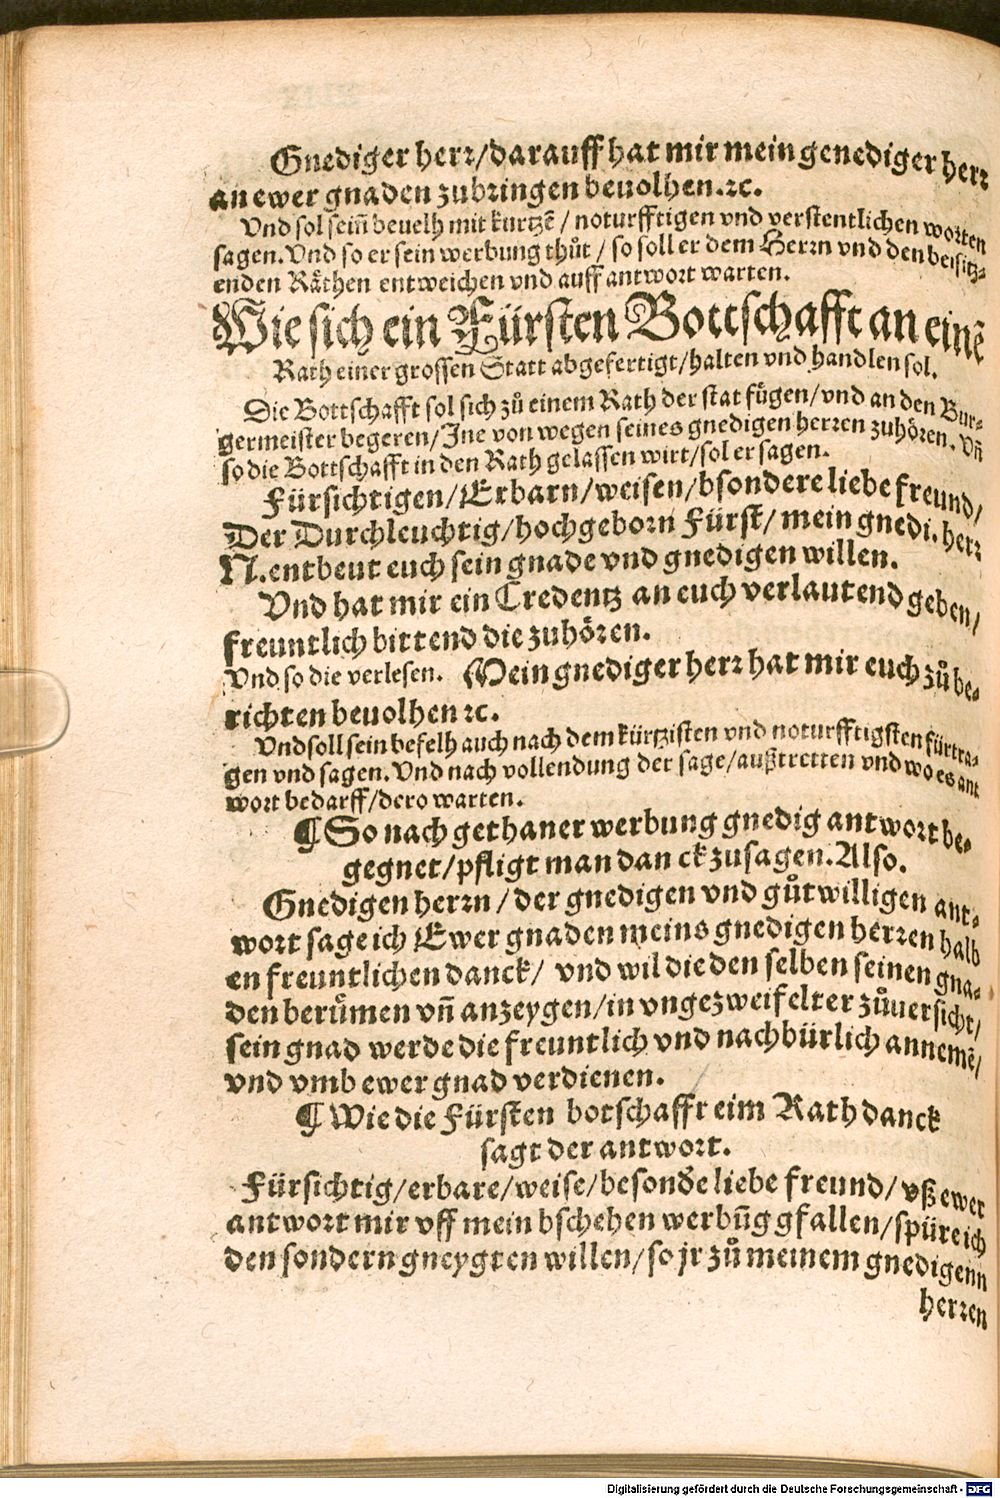 Gnediger herr/darauff hat mir mein genediger herr
an ewer gnaden zubringen beuolhen.ꝛc.
Vnd sol sein̄ beuelh mit kurtzē / noturfftigen vnd verstentlichen worten
sagen. Vnd so er sein werbung thůt / so soll er dem Herrn vnd den beisitz⸗
enden Rȧ̈then entweichen vnd auff antwort warten.
Wie sich ein Fürsten Bottschafft an einē
Rath einer grossen Statt abgefertigt/halten vnd handlen sol.
Die Bottschafft sol sich zů einem Rath der stat fůgen/vnd an den Bur⸗
germeister begeren/Jne von wegen seines gnedigen herren zuhören. Vn̄
so die Bottschafft in den Rath gelassen wirt/sol er sagen.
Fürsichtigen/Erbarn/weisen/bsondere liebe freund/
Der Durchleuchtig/hochgeborn Fürst/mein gnedi. herr
N. entbeut euch sein gnade vnd gnedigen willen.
Vnd hat mir ein Credentz an euch verlautend geben/
freuntlich bittend die zuhören.
Vnd so die verlesen. Mein gnediger herr hat mir euch zů be⸗
richten beuolhen ꝛc.
Vnd soll sein befelh auch nach dem kürtzisten vnd noturfftigsten fürtra⸗
gen vnd sagen. Vnd nach vollendung der sage/außtretten vnd wo es ant
wort bedarff/dero warten.
¶ So nach gethaner werbung gnedig antwort be⸗
gegnet/pfligt man danck zusagen. Also.
Gnedigen herrn / der gnedigen vnd gůtwilligen ant⸗
wort sage ich Ewer gnaden meins gnedigen herren halb
en freuntlichen danck/ vnd wil die den selben seinen gna⸗
den berümen vn̄ anzeygen/in vngezweifelter zůuersicht/
sein gnad werde die freuntlich vnd nachbürlich annemē/
vnd vmb ewer gnad verdienen.
¶ Wie die Fürsten botschafft eim Rath danck
sagt der antwort.
Fürsichtig/erbare/weise/besonđe liebe freund/vß ewer
antwort mir vff mein bschehen werbūg gfallen/spüre ich
den sondern gneygten willen/so jr zů meinem gnedigenn
herren
Digitalisierung gefördert durch die Deutsche Forschungsgemeinschaft - DFG